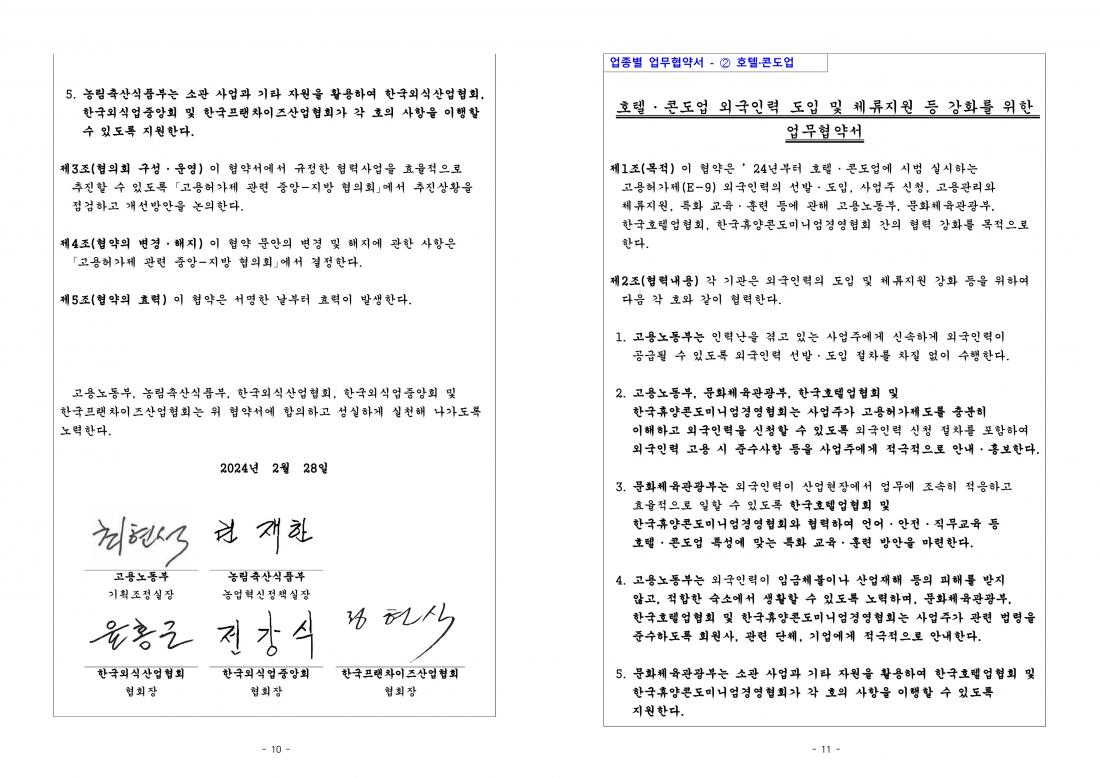 5. 농림축산식품부는 소관 사업과 기타 자원을 활용하여 한국외식산업협회,
한국외식업중앙회 및 한국프랜차이즈산업협회가 각 호의 사항을 이행할
수 있도록 지원한다.
제3조(협의회 구성·운영) 이 협약서에서 규정한 협력사업을 효율적으로
추진할 수 있도록 「고용허가제 관련 중앙-지방 협의회」에서 추진상황을
점검하고 개선방안을 논의한다.
제4조(협약의 변경·해지) 이 협약 문안의 변경 및 해지에 관한 사항은
「고용허가제 관련 중앙-지방 협의회」에서 결정한다.
제5조(협약의 효력) 이 협약은 서명한 날부터 효력이 발생한다.
고용노동부, 농림축산식품부, 한국외식산업협회, 한국외식업중앙회 및
한국프랜차이즈산업협회는 위 협약서에 합의하고 성실하게 실천해 나가도록
노력한다.
2024년 2월 28일
최현석 권재한
고용노동부 농림축산식품부
기획조정실장 농업혁신정책실장
윤홍근 전강식 정현식
한국외식산업협회 한국외식업중앙회 한국프랜차이즈산업협회
협회장 협회장 협회장
- 10 -
업종별 업무협약서 - ② 호텔·콘도업
호텔·콘도업 외국인력 도입 및 체류지원 등 강화를 위한
업무협약서
제1조(목적) 이 협약은 '24년부터 호텔·콘도업에 시범 실시하는
고용허가제(E-9) 외국인력의 선발·도입, 사업주 신청, 고용관리와
체류지원, 특화 교육·훈련 등에 관해 고용노동부, 문화체육관광부,
한국호텔업협회, 한국휴양콘도미니엄경영협회 간의 협력 강화를 목적으로
한다.
제2조(협력내용) 각 기관은 외국인력의 도입 및 체류지원 강화 등을 위하여
다음 각 호와 같이 협력한다.
1. 고용노동부는 인력난을 겪고 있는 사업주에게 신속하게 외국인력이
공급될 수 있도록 외국인력 선발·도입 절차를 차질 없이 수행한다.
2. 고용노동부, 문화체육관광부, 한국호텔업협회 및
한국휴양콘도미니엄경영협회는 사업주가 고용허가제도를 충분히
이해하고 외국인력을 신청할 수 있도록 외국인력 신청 절차를 포함하여
외국인력 고용 시 준수사항 등을 사업주에게 적극적으로 안내·홍보한다.
3. 문화체육관광부는 외국인력이 산업현장에서 업무에 조속히 적응하고
효율적으로 일할 수 있도록 한국호텔업협회 및
한국휴양콘도미니엄경영협회와 협력하여 언어·안전·직무교육 등
호텔·콘도업 특성에 맞는 특화 교육·훈련 방안을 마련한다.
4. 고용노동부는 외국인력이 임금체불이나 산업재해 등의 피해를 받지
않고, 적합한 숙소에서 생활할 수 있도록 노력하며, 문화체육관광부,
한국호텔업협회 및 한국휴양콘도미니엄경영협회는 사업주가 관련 법령을
준수하도록 회원사, 관련 단체, 기업에게 적극적으로 안내한다.
5. 문화체육관광부는 소관 사업과 기타 자원을 활용하여 한국호텔업협회 및
한국휴양콘도미니엄경영협회가 각 호의 사항을 이행할 수 있도록
지원한다.
- 11 -